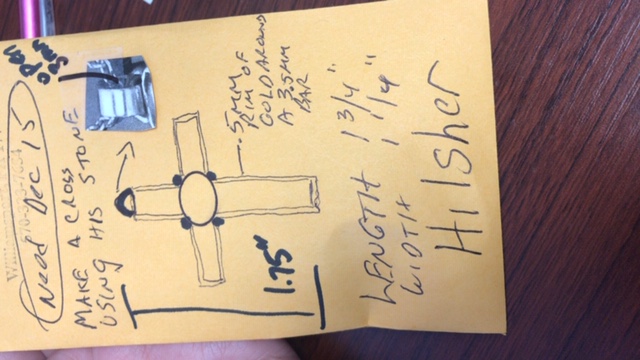 Williamsport, PA
570-323-7634
Need Dec 15
open
3mm
MAKE A CROSS
USING HIS STONE
1.75"
.5MM
RIM OF
GOLD AROUND
A 3.5MM
BAR
LENGTH 1 3/4"
WIDTH 1 1/4"
Hilsher